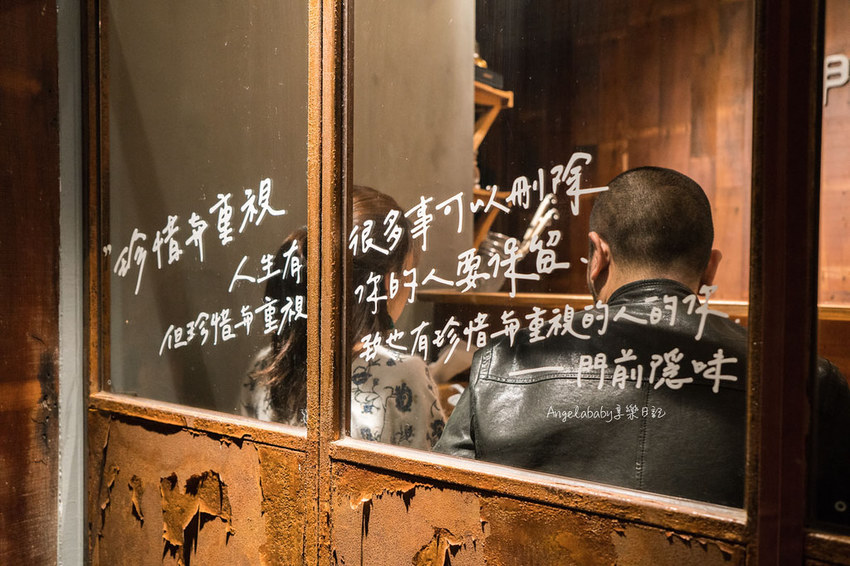 "珍惜与重視
人生有很多事可以刪除
但珍惜与重視你的人要保留、
致也有珍惜与重視的人的
——門前隱味
Angelababy享樂日記